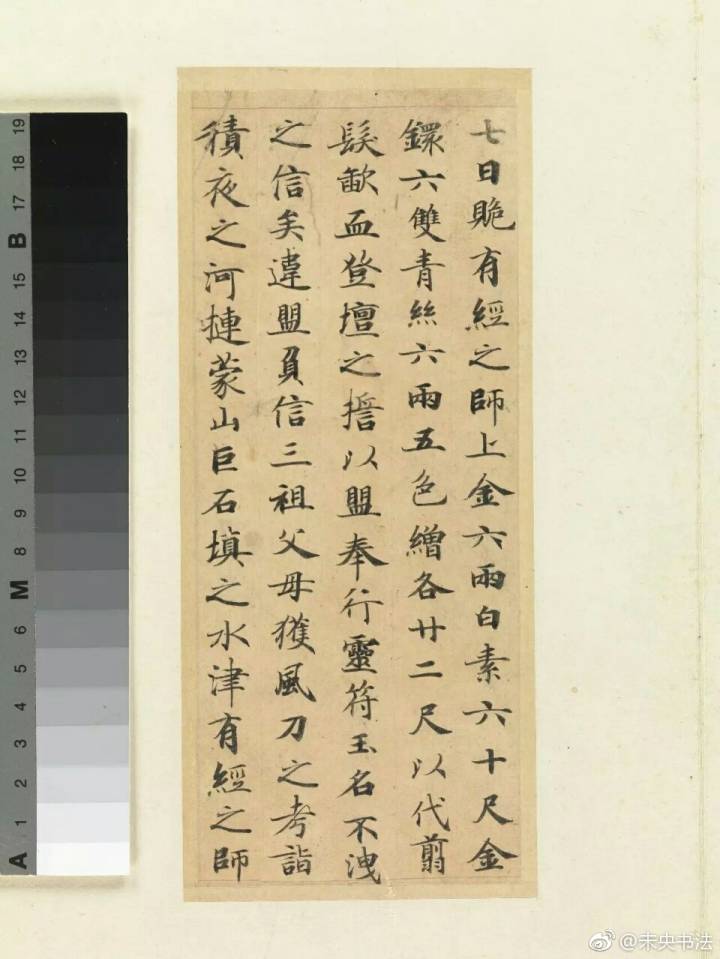 七日賝有經之師上金六兩白素六十尺金
鐶六雙青絲六兩五色繒各廿二尺以代翦
髮歃血登壇之擔以盟奉行靈符玉名不洩
之信矣違盟負信三祖父母獲風刀之考詣
積夜之河摙蒙山巨石填之水津有經之師
A 1 2 3 4 5 6 M 8 9 10 11 12 13 14 15 B 17 18 19
@未央书法